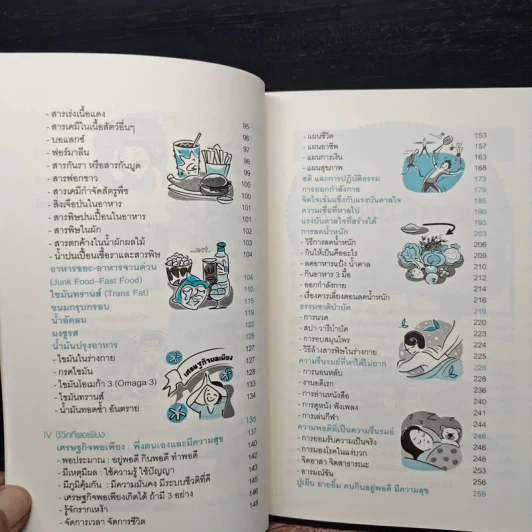 - สารเร่งเนื้อแดง 95
- สารเคมีในเนื้อสัตว์อื่นๆ 96
- บอแลกซ์ 99
- ฟอร์มาลีน 99
- สารกันรา หรือสารกันบูด 100
- สารฟอกขาว 100
- สารเคมีกำจัดสัตรูพืช 100
- สิ่งเจือปนในอาหาร
- สารพิษปนเปื้อนในอาหาร
- สารพิษในผัก 103
- สารตกค้างในน้ำผักผลไม้ 103
- น้ำปนเปื้อนเชื้อราและสารพิษ 104
อาหารขยะ-อาหารจานด่วน
(Junk Food-Fast Food) 104
ไขมันทรานส์ (Trans Fat) 110
ขนมกรุบกรอบ 115
น้ำอัดลม 118
ผงชูรส 122
น้ำมันปรุงอาหาร 126
- ไขมันในร่างกาย 127
- กรดไขมัน 127
- ไขมันโอเมก้า 3 (Omaga 3)
- ไขมันทรานส์
- น้ำมันทอดซ้ำ อันตราย 134
เศรษฐกิจพอเพียง
IV ชีวิตที่พอเพียง 136
เศรษฐกิจพอเพียง : พึ่งตนเองและมีความสุข 137
- พอประมาณ : อยู่พอดี กินพอดี ทำพอดี 140
- มีเหตุมีผล : ใช้ความรู้ ใช้ปัญญา 141
- มีภูมิคุ้มกัน : มีความมั่นคง มีระบบชีวีตที่ดี
- เศรษฐกิจพอเพียงเกิดได้ ถ้ามี 3 อย่าง
- รู้จักรากเหง้า
- จัดการเวลา จัดการชีวิต
- แผนชีวิต 153
- แผนอาชีพ 157
- แผนการเงิน 163
- แผนสุขภาพ 168
สติ และการปฏิบัติธรรม 173
การออกกำลังกาย 179
จิตใจเข้มแข็งและแรงบันดาลใจ 185
ความเชื่อที่หายไป 190
แรงบันดาลใจที่สร้างได้ 193
การลดน้ำหนัก 203
- วิธีการลดน้ำหนัก 206
- กินให้เป็นคืออะไร 209
- ลดอาหารแป้ง น้ำตาล 210
- กินอาหาร 3 มื้อ 212
- ออกกำลังกาย 214
- เรื่องควรเลี่ยงตอนลดน้ำหนัก 216
ธรรมชาติบำบัด 219
- การนวด
- สปา วารีบำบัด
- การอบสมุนไพร
- วิธีล้างสารพิษในร่างกาย
ความรื่นรมย์ที่หาได้ไม่ยาก 228
- การนอนหลับ
- งานอดิเรก
- การอ่านหนังสือ
- การดูหนัง ฟังเพลง
- การเล่นกีฬา
ความพอดีที่เป็นความรื่นรมย์
- การยอมรับความเป็นจริง 246
- การมองโรคในแง่บวก
- จิตอาสา จิตสาธารณะ
- อารมณ์ขัน 256
ปู่เย็น ยายยิ้ม คนกินอยู่พอดี มีความสุข 259